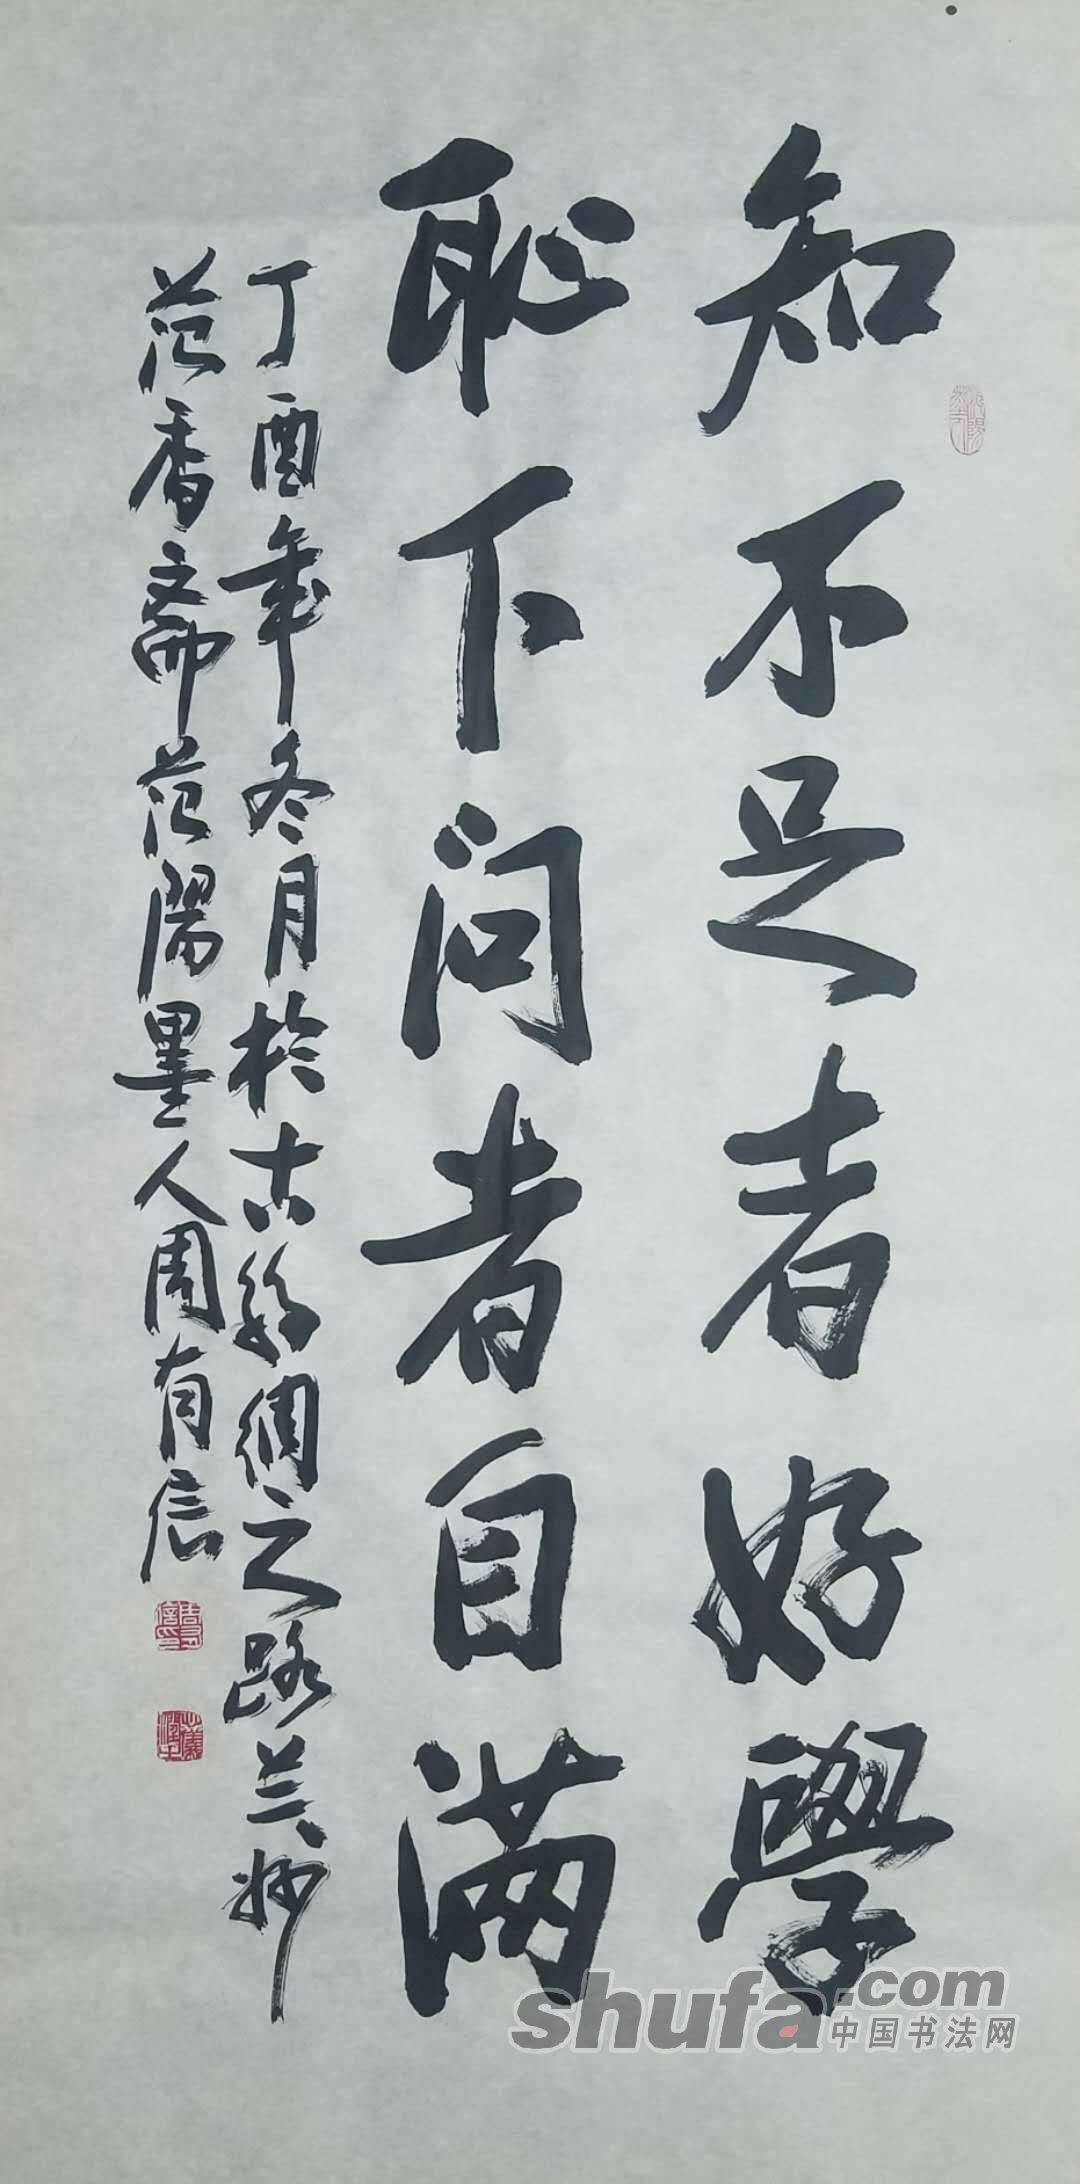 知不足者好學
耻下问者自满
丁酉年冬月於古丝绸之路兰州
范香斋范陽墨人周有信
shufa.com
中国书法网